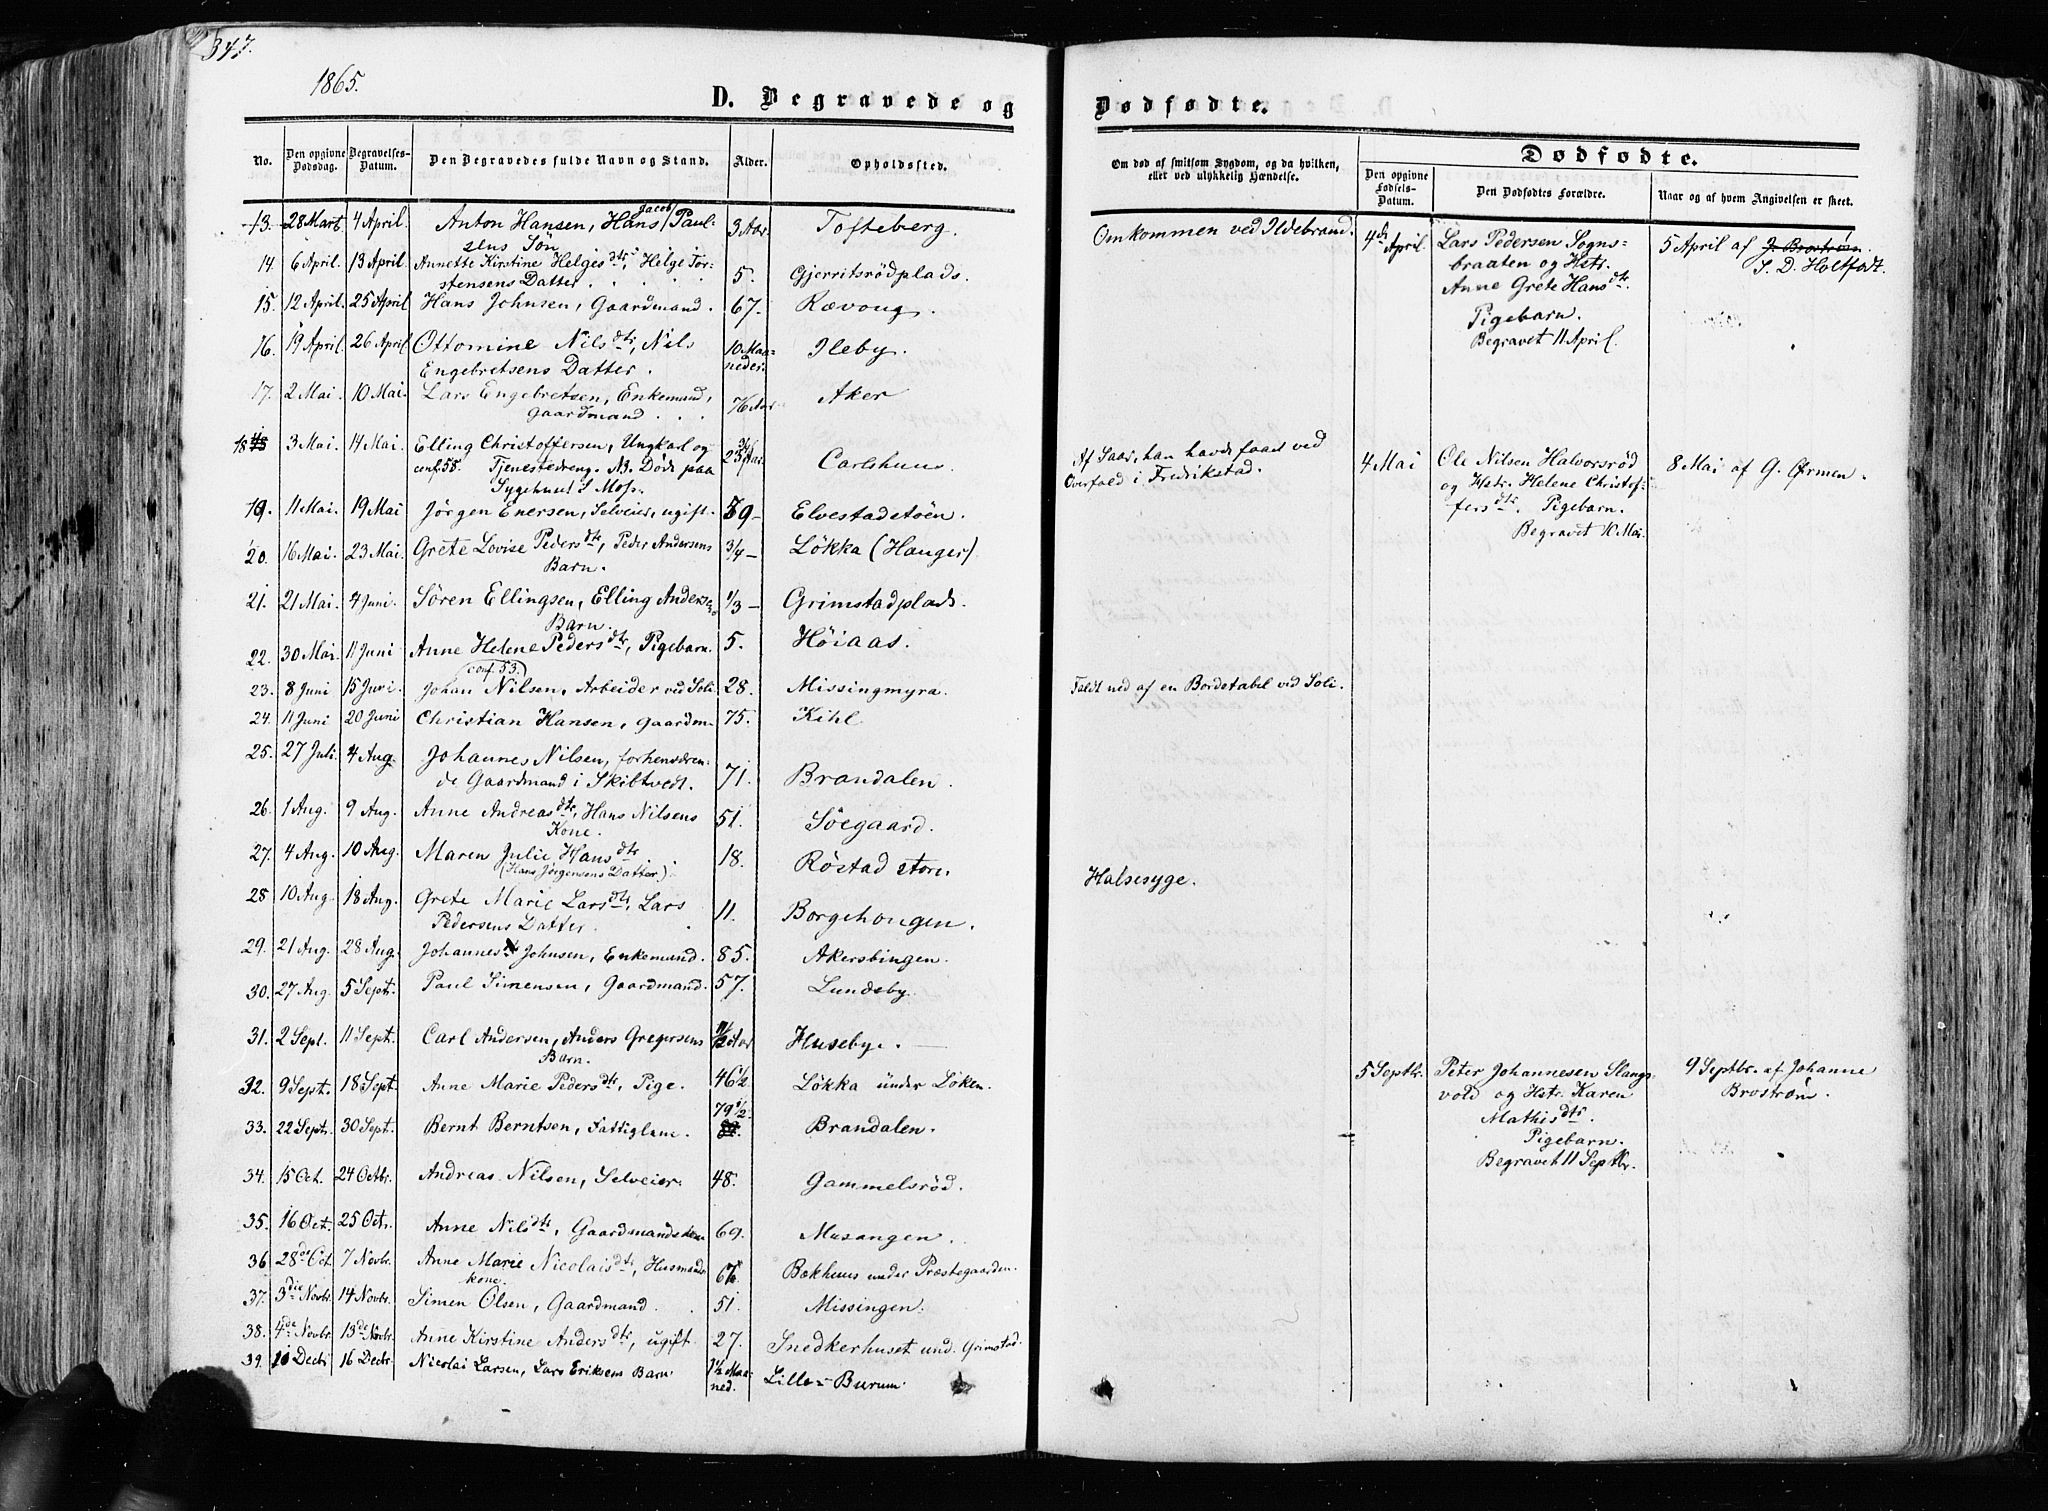 347.
1865.
D. Begravede og
No.
Den opgivne Dødsdag.
Begravelses-Datum.
Den Begravedes fulde Navn og Stand.
Alder.
Opholdssted.
13. 28 Mart 4 April. Anton Hansen, Hans Jacob Paul- 3 Aar Tofteberg.
sens Sön
14. 6 April. 13 April. Annette Kirstine Helgesdtr, Helge Tor-
stensens Datter . . . . 5. Gjerritsrödplads.
15. 12 April. 25 April Hans Johnsen, Gaardmand. 67. Rævoug.
16. 19 April. 26 April Ottomine Nilsdtr, Nils 10 Maa- Ileby.
Engebretsens Datter. neder.
17. 2 Mai. 10 Mai. Lars Engebretsen, Enkemand, Aker
Gaardmand . . . 76 Aar
18 3 Mai. 14 Mai. Elling Christoffersen, Ungkarl og
conf. 58. Tjenestedreng. NB. Döde paa 23 3/4 Aar. Carlshuus.
Sygehuus i Moss.
19. 11 Mai. 19 Mai Jörgen Enersen, Selveier, ugift. 79 – Elvestadstöen.
20. 16 Mai. 23 Mai. Grete Lovise Pedersdtr, Peder Andersens 3/4 – Løkka (Hauger)
Barn.
21. 21 Mai. 4 Juni. Sören Ellingsen, Elling Anders- 1/3 – Grimstadplads.
Barn.
22. 30 Mai. 11 Juni Anne Helene Pedersdtr, Pigebarn. 5. Höiaas.
conf. 53.
23. 8 Juni 15 Juni. Johan Nilsen, Arbeider ved Soli 28. Missingmyra.
24. 11 Juni 20 Juni Christian Hansen, Gaardm. 75. Kihl
25. 27 Juli. 4 Aug. Johannes Nilsen, forhenværen-
de Gaardmand i Skibtvedt. 71. Brandalen.
26. 1 Aug. 9 Aug. Anne Andreasdtr, Hans Nilsens 51. Söegaard.
Kone.
27. 4 Aug. 10 Aug. Maren Julie Hansdtr 18. Röstad store.
(Hans Jörgensens Datter).
28 10 Aug. 18 Aug. Grete Marie Larsdtr, Lars 11. Borgehougen.
Pedersens Datter.
29. 21 Aug. 28 Aug. Johannes Johnsen, Enkemand. 85. Akersbingen.
30. 27 Aug. 5 Septr. Paul Simensen, Gaardmand. 57. Lundeby.
31. 2 Sept. 11 Sept. Carl Andersen, Anders Gregersens Huseby.
Barn.
32. 9 Sept. 18 Sept. Anne Marie Pedersdtr, Pige. 46½ Løkka under Løken.
79½
33. 22 Septr. 30 Sept. Bernt Berntsen, Fattiglem. Brandalen.
34. 15 Oct. 24 Octbr. Andreas Nilsen, Selveier. 48. Gammelsröd.
35. 16 Oct. 25 Octr. Anne Nilsdtr, Gaardmandskone 69. Musangen.
36 28de Oct. 7 Novbr. Anne Marie Nicolaisdtr, Husmands Bækhuus under Præstegaarden.
kone.
37. 3die Novbr. 14 Novbr. Simen Olsen, Gaardmand. 51. Missingen.
38. 4de Novbr. 13de Novbr. Anne Kirstine Andersdtr, ugift 27. Snedkerhuset und. Grimstad.
39. 10 Decbr 16 Decbr. Nicolai Larsen, Lars Eriksens Barn. 1½ Maa-
ned. Lille-Burum.
Dødfødte.
Om død af smitsom Sygdom, og da hvilken, eller ved ulykkelig Hændelse.
Dødfødte.
Den opgivne Fødsels-Datum.
Den Dødfødtes Forældre.
Naar og af hvem Angivelsen er skeet.
Omkommen ved Ildebrand.
4de April. Lars Pedersen Sogns- 5 April af J. Broström.
braaten og Hstr. S. D. Holtfodt.
Anne Grete Hansdtr.
Pigebarn.
Begravet 11 April.
Af Saar, han havde faaet ved
Overfald i Fredrikstad.
4 Mai Ole Nilsen Halvorsröd 8 Mai af G. Ørmen.
og Hstr. Helene Christof-
fersdtr. Pigebarn.
Begravet 10 Mai.
Faldt ned af en Bordstabel ved Soli.
Halsesyge.
5 Septbr. Peter Johannesen Slangs- 9 Septbr. af Johanne
vold og Hstr. Karen Broström.
Mathisdtr.
Pigebarn.
Begravet 11 Septbr.